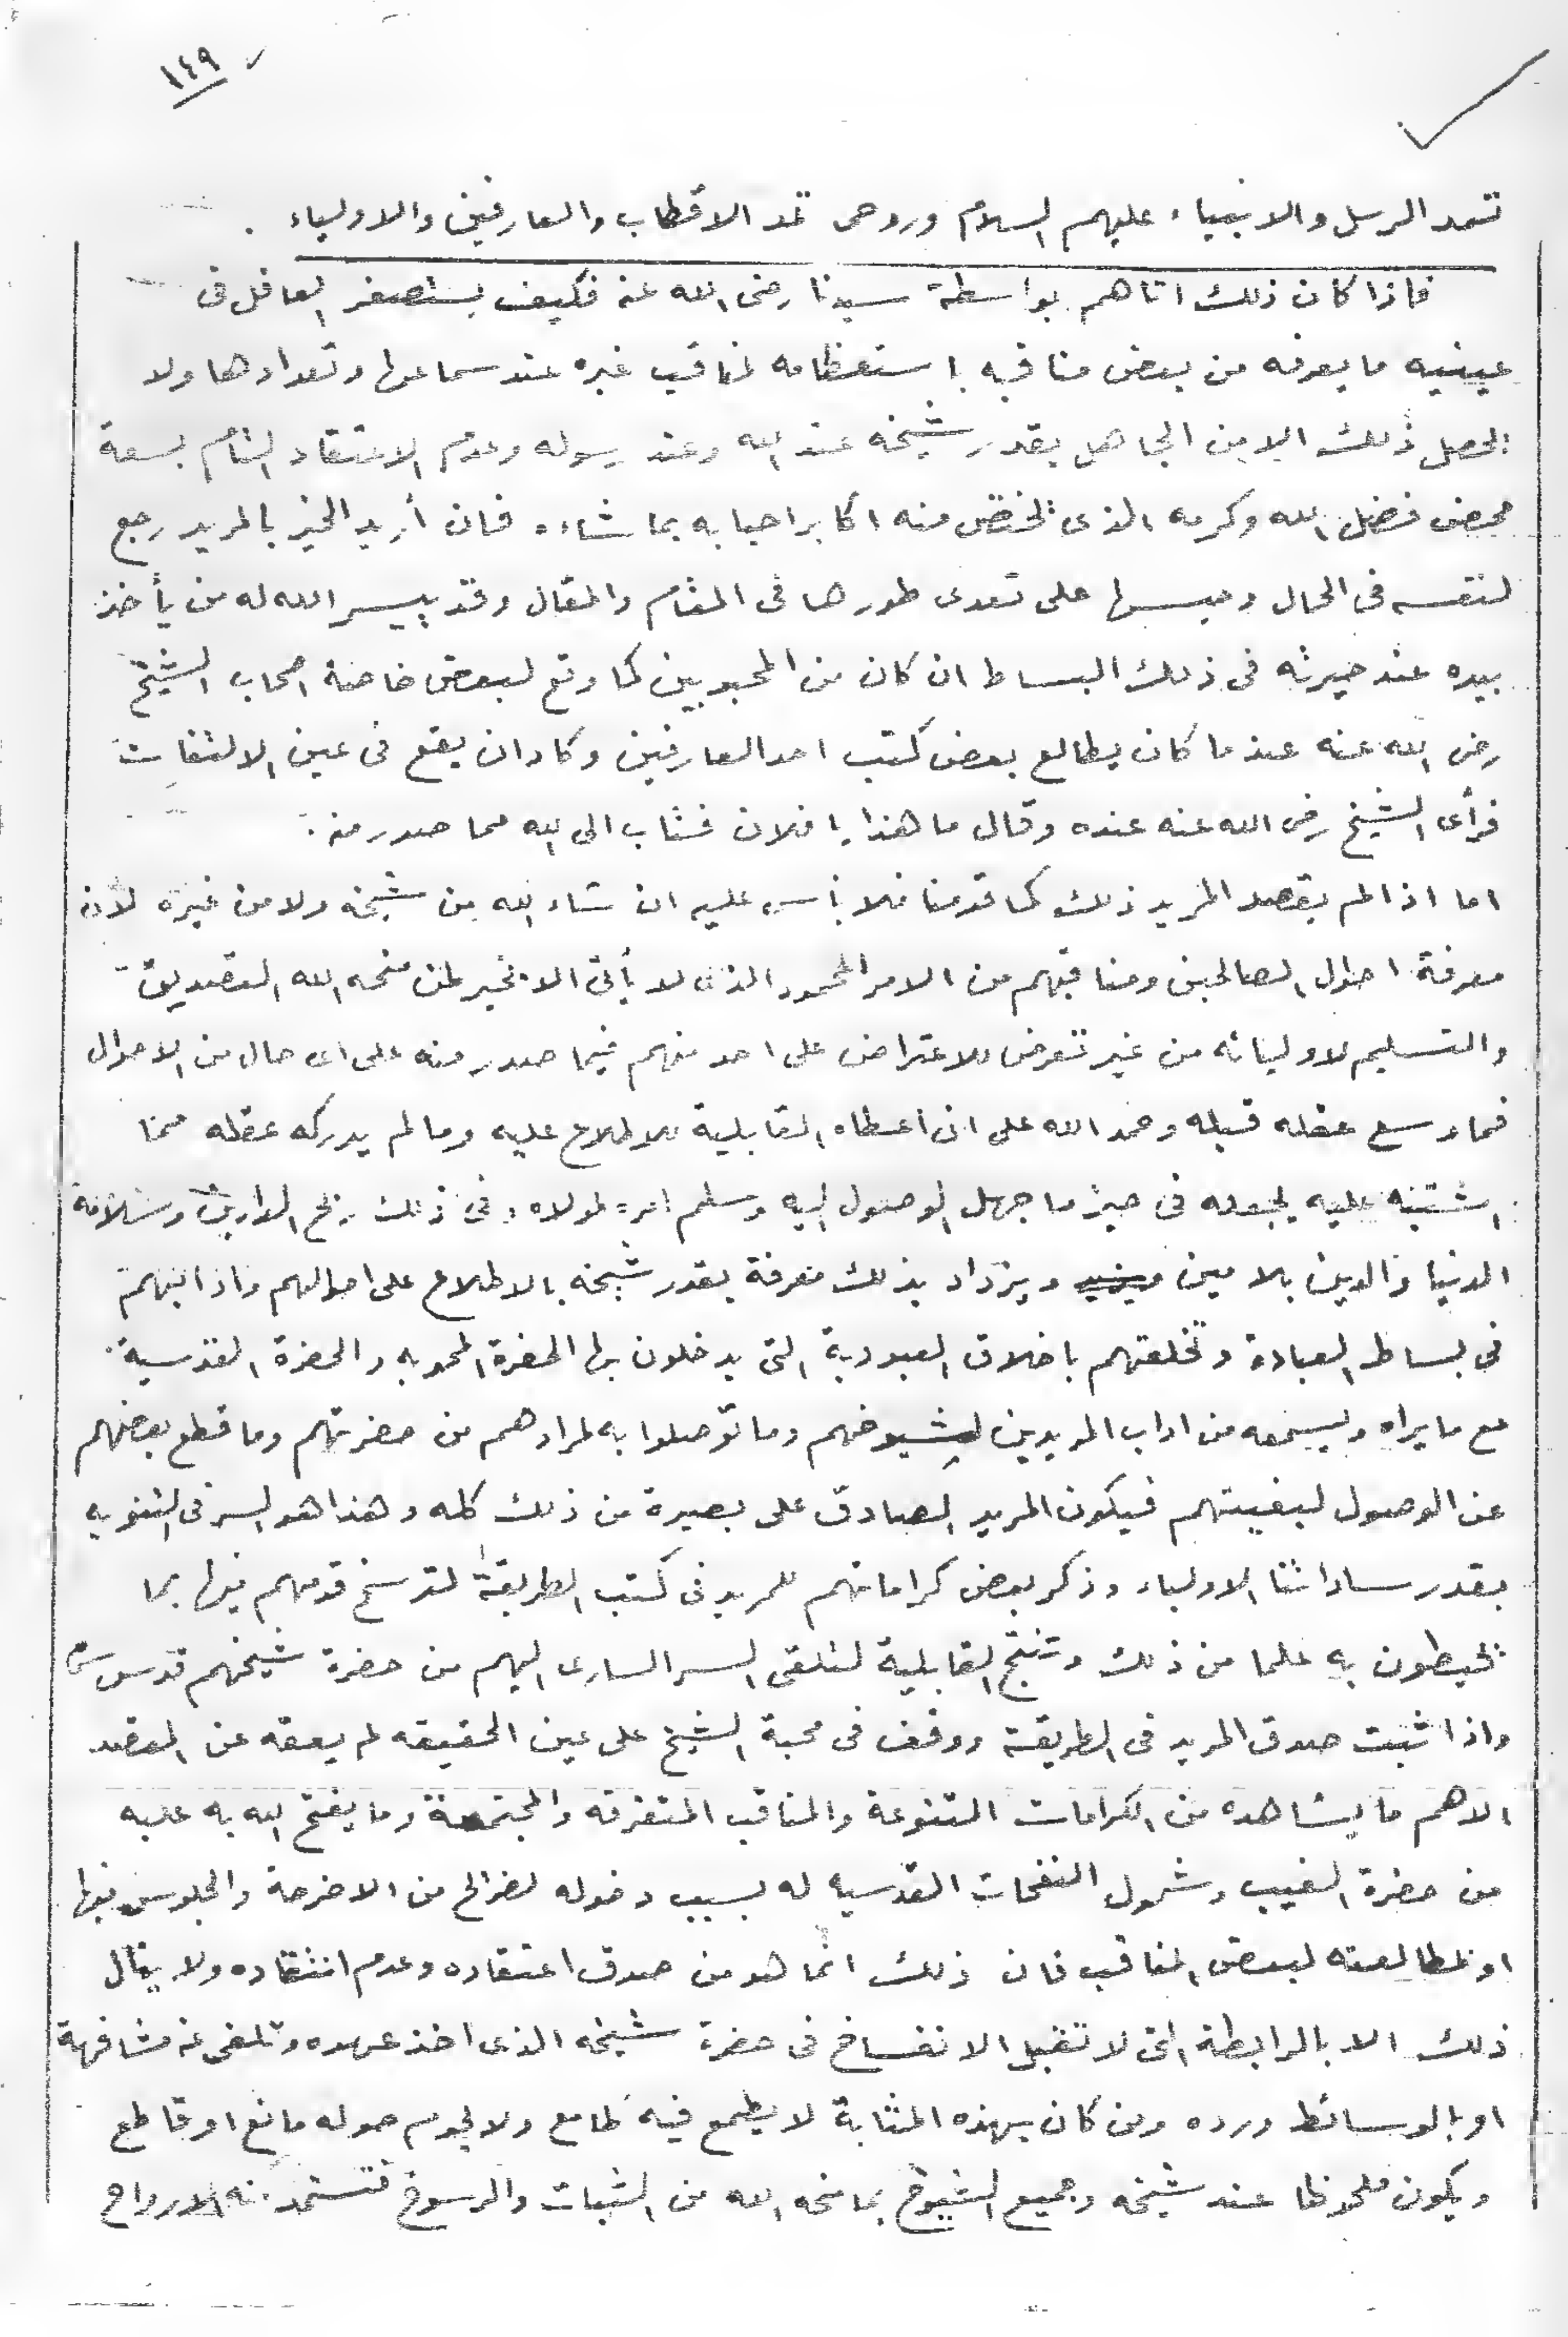 ١٤٩
تمد الرسل والانبياء عليهم السلام وروحى تمد الاقطاب والعارفين والاولياء .
فاذا كان ذلك اتاهم بواسطة سيدنا رضى الله عنه فكيف يستصغر العاقل فى
عينيه ما يعرفه من بعض مناقبه باستعظامه لمناقب غيره عند سماعها وتعدادها ولا
يحصل ذلك الا من الجاهل بقدر شيخه عند الله وعند رسوله وعدم الاعتقاد التام بسعة
محض فضل الله وكرمه الذى يختص منه اكابر احبابه بما شاءه فان أريد الخير بالمريد رجع
لنفسه فى الحال وحبسها على تعدى طورها فى المقام والمقال وقد ييسر الله له من يأخذ
بيده عند حيرته فى ذلك البساط ان كان من المحبوبين كما وقع لبعض خاصة اصحاب الشيخ
رضى الله عنه عندما كان يطالع بعض كتب احد العارفين وكاد ان يقع فى عين الالتفات
فرأى الشيخ رضى الله عنه عنده وقال ما هذا يا فلان فتاب الى الله مما صدر منه .
اما اذا لم يقصد المريد ذلك كما قدمنا فلا بأس عليه ان شاء الله من شيخه ولا من غيره لأن
معرفة احوال الصالحين ومناقبهم من الامر المحمود الذى لا يأتى الا بخير لمن منحه الله التصديق
والتسليم لاوليائه من غير تعرض للاعتراض على احد منهم فيما صدر منه على اى حال من الاحوال
فما وسع عقله قبله وحمد الله على ان اعطاه القابلية للاطلاع عليه وما لم يدركه عقله مما
اشتبه عليه يجعله فى حيز ما جهل الوصول اليه وسلم امره لمولاه وفى ذلك ربح الدارين وسلامة
الدنيا والدين بلا مين ويزداد بذلك معرفة بقدر شيخه بالاطلاع على احوالهم واذا
فى بساط العبادة وتخلقهم باخلاق العبودية التى يدخلون بها الحضرة المحمديه والحضرة القدسية
مع ما يراه ويسمعه من اداب المريدين لشيوخهم وما توصلوا به لمرادهم من حضرتهم وما قطع بعضهم
عن الوصول لبغيتهم فيكون المريد الصادق على بصيرة من ذلك كله وهذا هو السر فى التنويه
بقدر ساداتنا الاولياء وذكر بعض كراماتهم للمريد فى كتب الطريقة لترسخ قدمهم فيها بما
يحيطون به علما من ذلك وتنتج القابلية لتلقى السر السارى اليهم من حضرة شيخهم قدس سره
واذا ثبت صدق المريد فى الطريقة ووقف فى محبة الشيخ على عين الحقيقه لم يعقه عن المقصد
الاهم ما يشاهده من الكرامات المتنوعة والمناقب المتفرقه والمجتمعة وما يفتح الله به عليه
من حضرة الغيب وشمول النفحات القدسيه له بسبب دخوله لضرائح من الاضرحة والجلوس فيها
او لمطالعته لبعض المناقب فان ذلك انما هو من صدق اعتقاده وعدم انتقاده ولا ينال
ذلك الا بالرابطة التى لا تقبل الانفساخ فى حضرة شيخه الذى اخذ عهده وتلقى عنه مشافهة
او بالوسائط ورده ومن كان بهذه المثابة لا يطمع فيه طامع ولا يحوم حوله مانع او قاطع
ويكون ملحوظا عند شيخه وجميع الشيوخ بما منحه الله من الثبات والرسوخ فتستمد منه الارواح